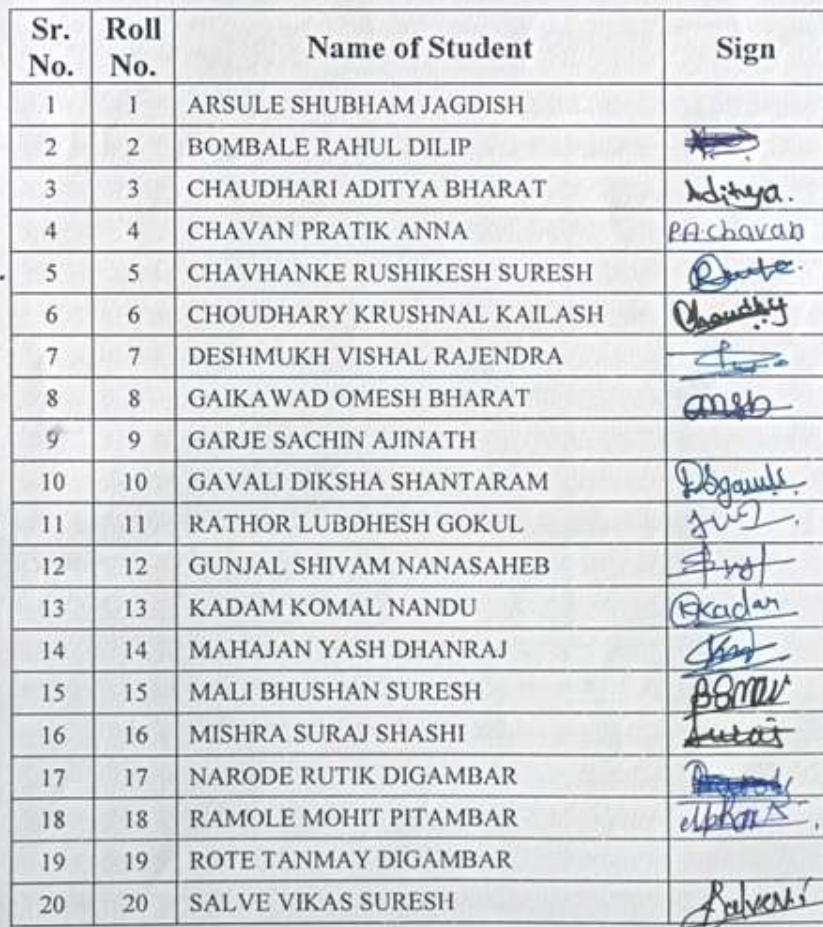 Sr. No. Roll No. Name of Student Sign
1 1 ARSULE SHUBHAM JAGDISH
2 2 BOMBALE RAHUL DILIP
3 3 CHAUDHARI ADITYA BHARAT Aditya.
4 4 CHAVAN PRATIK ANNA PAchavan
5 5 CHAVHANKE RUSHIKESH SURESH
6 6 CHOUDHARY KRUSHNAL KAILASH
7 7 DESHMUKH VISHAL RAJENDRA
8 8 GAIKAWAD OMESH BHARAT
9 9 GARJE SACHIN AJINATH
10 10 GAVALI DIKSHA SHANTARAM
11 11 RATHOR LUBDHESH GOKUL
12 12 GUNJAL SHIVAM NANASAHEB
13 13 KADAM KOMAL NANDU
14 14 MAHAJAN YASH DHANRAJ
15 15 MALI BHUSHAN SURESH
16 16 MISHRA SURAJ SHASHI Suraj
17 17 NARODE RUTIK DIGAMBAR
18 18 RAMOLE MOHIT PITAMBAR
19 19 ROTE TANMAY DIGAMBAR
20 20 SALVE VIKAS SURESH